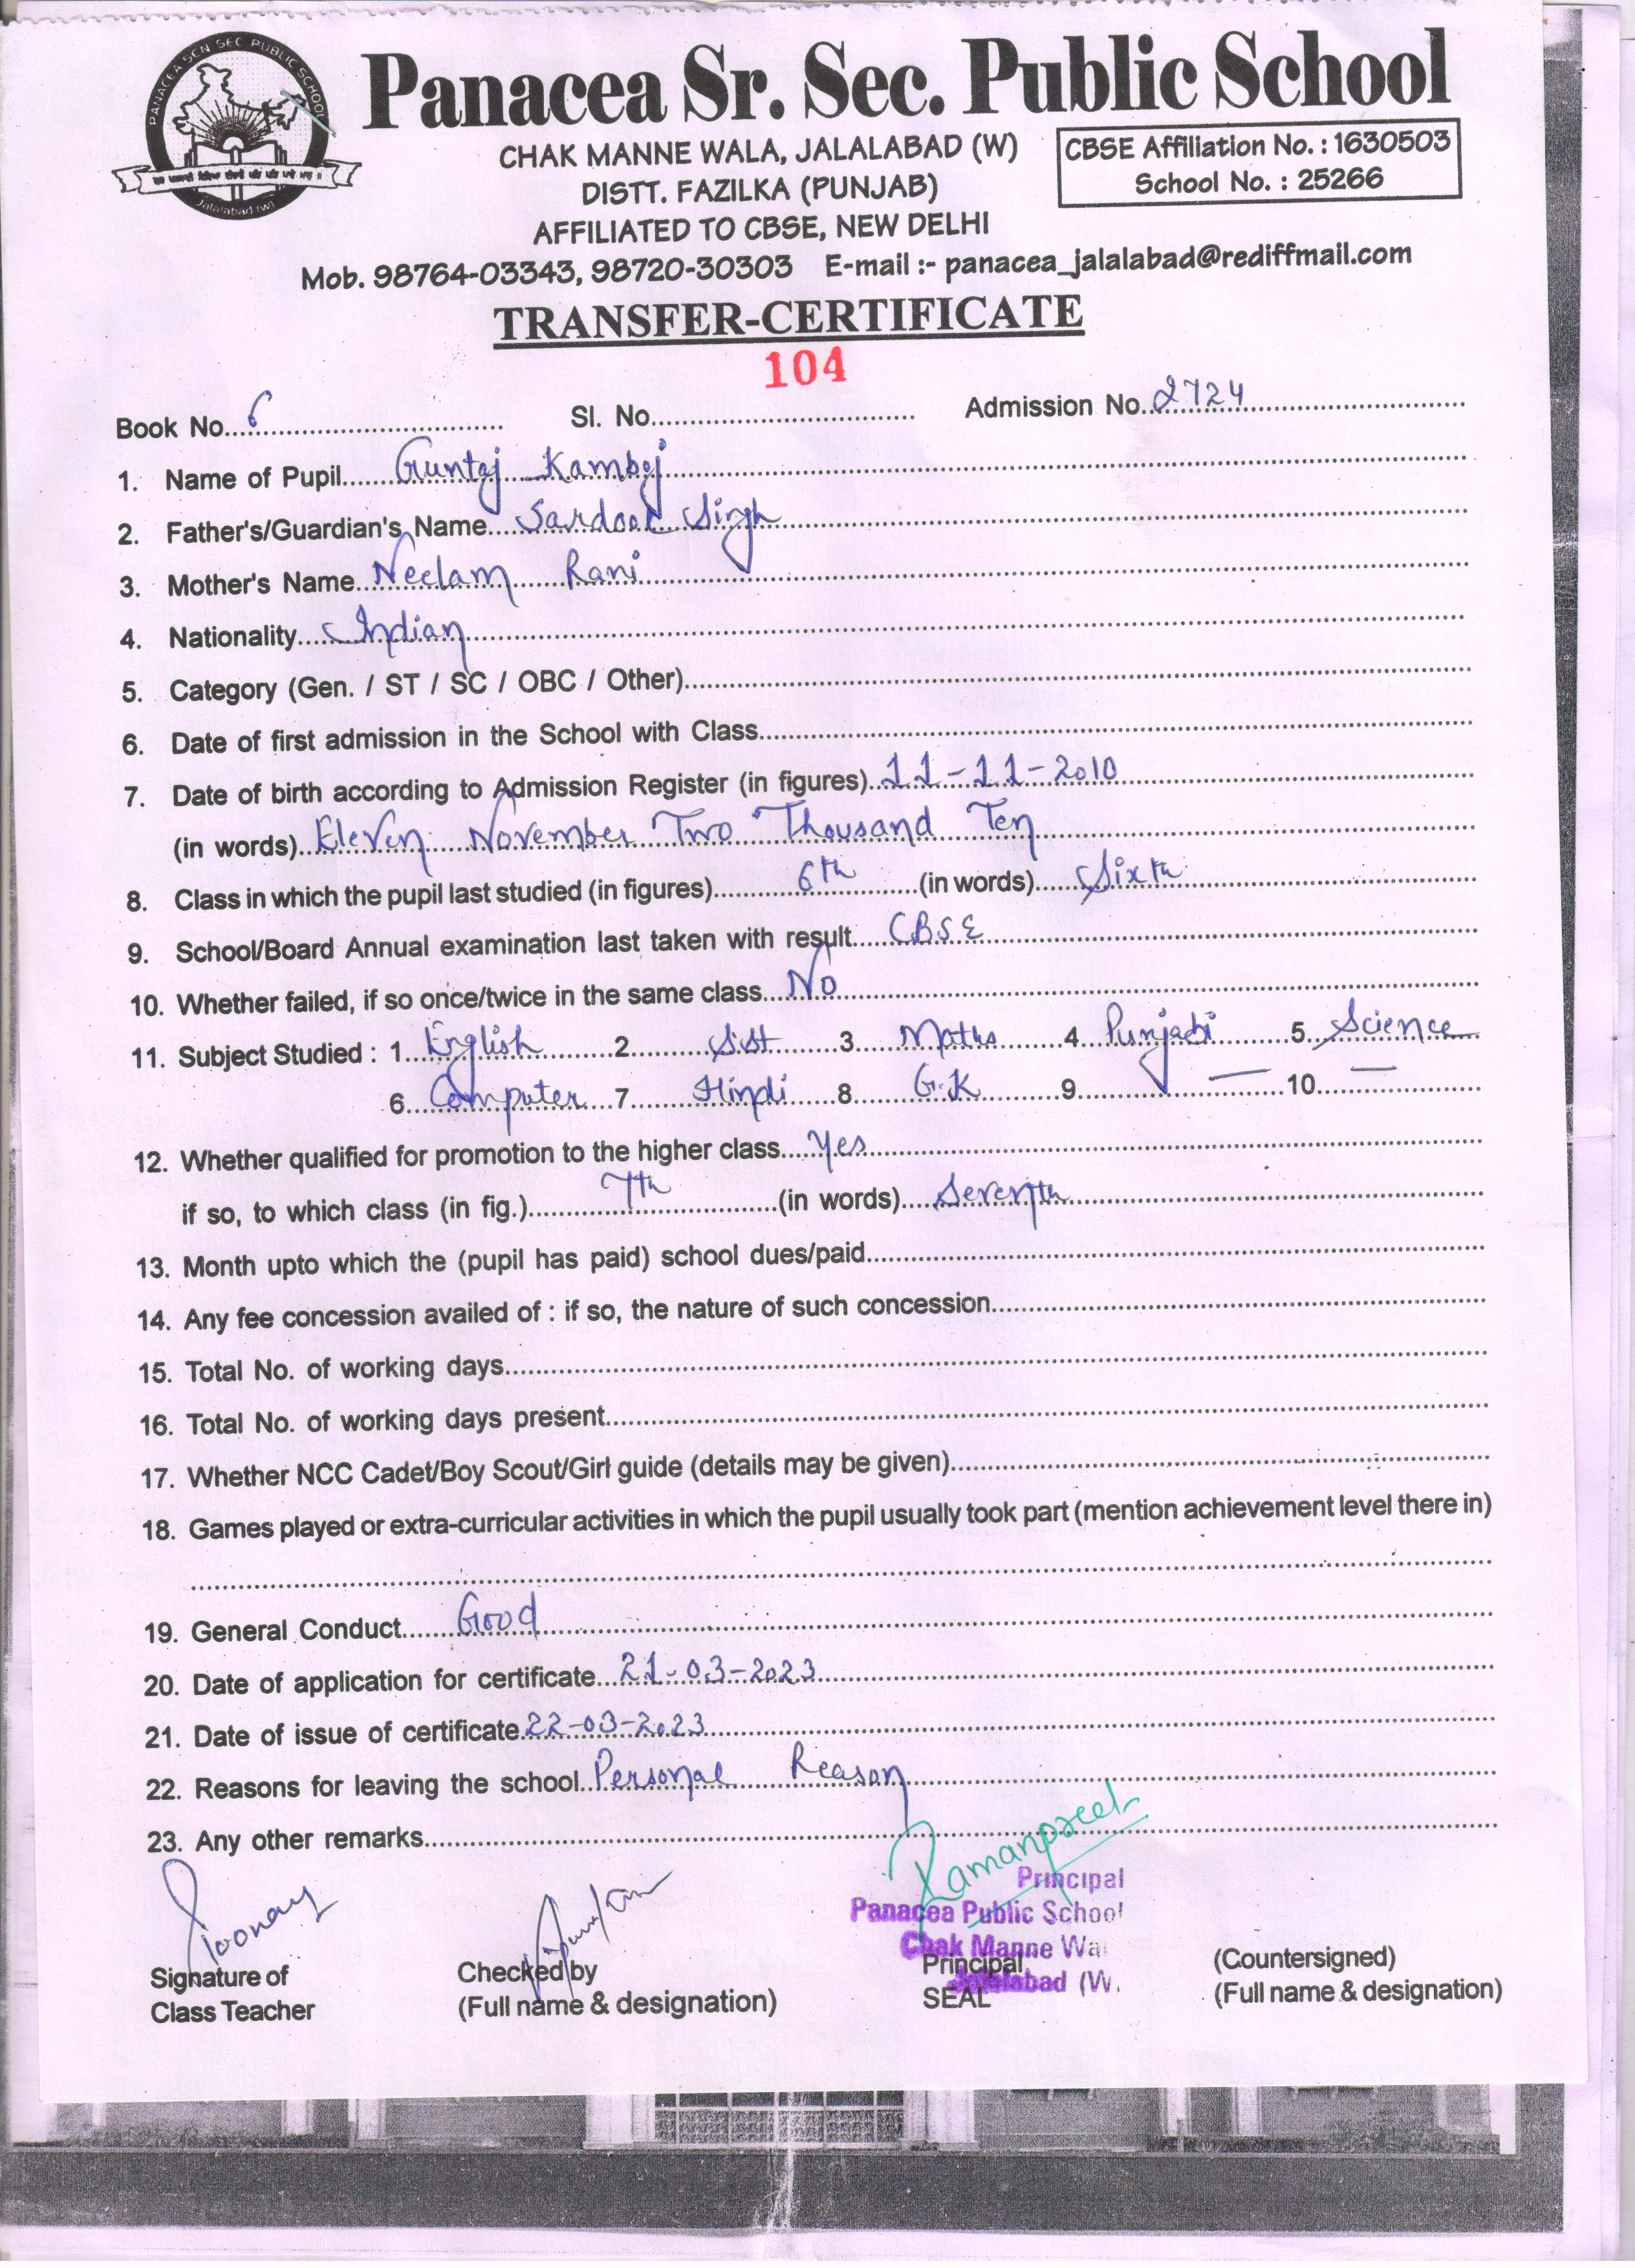 PANACEA SEN SEC PUBLIC SCHOOL
Jalalabad (W)
Panacea Sr. Sec. Public School
CHAK MANNE WALA, JALALABAD (W)
DISTT. FAZILKA (PUNJAB)
AFFILIATED TO CBSE, NEW DELHI
CBSE Affiliation No. : 1630503
School No. : 25266
Mob. 98764-03343, 98720-30303 E-mail :- panacea_jalalabad@rediffmail.com
TRANSFER-CERTIFICATE
104
Book No. 6 Sl. No. Admission No. 2724
1. Name of Pupil Guntaj Kamboj
2. Father's/Guardian's Name Sardool Singh
3. Mother's Name Neelam Rani
4. Nationality Indian
5. Category (Gen. / ST / SC / OBC / Other)
6. Date of first admission in the School with Class
7. Date of birth according to Admission Register (in figures) 11-11-2010
(in words) Eleven November Two Thousand Ten
8. Class in which the pupil last studied (in figures) 6th (in words) Sixth
9. School/Board Annual examination last taken with result CBSE
10. Whether failed, if so once/twice in the same class No
11. Subject Studied : 1 English 2 S.St 3 Maths 4 Punjabi 5 Science
6 Computer 7 Hindi 8 G.K 9 — 10 —
12. Whether qualified for promotion to the higher class Yes
if so, to which class (in fig.) 7th (in words) Seventh
13. Month upto which the (pupil has paid) school dues/paid
14. Any fee concession availed of : if so, the nature of such concession
15. Total No. of working days
16. Total No. of working days present
17. Whether NCC Cadet/Boy Scout/Girl guide (details may be given)
18. Games played or extra-curricular activities in which the pupil usually took part (mention achievement level there in)
19. General Conduct Good
20. Date of application for certificate 21-03-2023
21. Date of issue of certificate 22-03-2023
22. Reasons for leaving the school Personal Reason
23. Any other remarks
Poonam
Ramanpreet
Principal
Panacea Public School
Chak Manne Wa
Jalalabad (W.
Signature of
Class Teacher
Checked by
(Full name & designation)
Principal
SEAL
(Countersigned)
(Full name & designation)